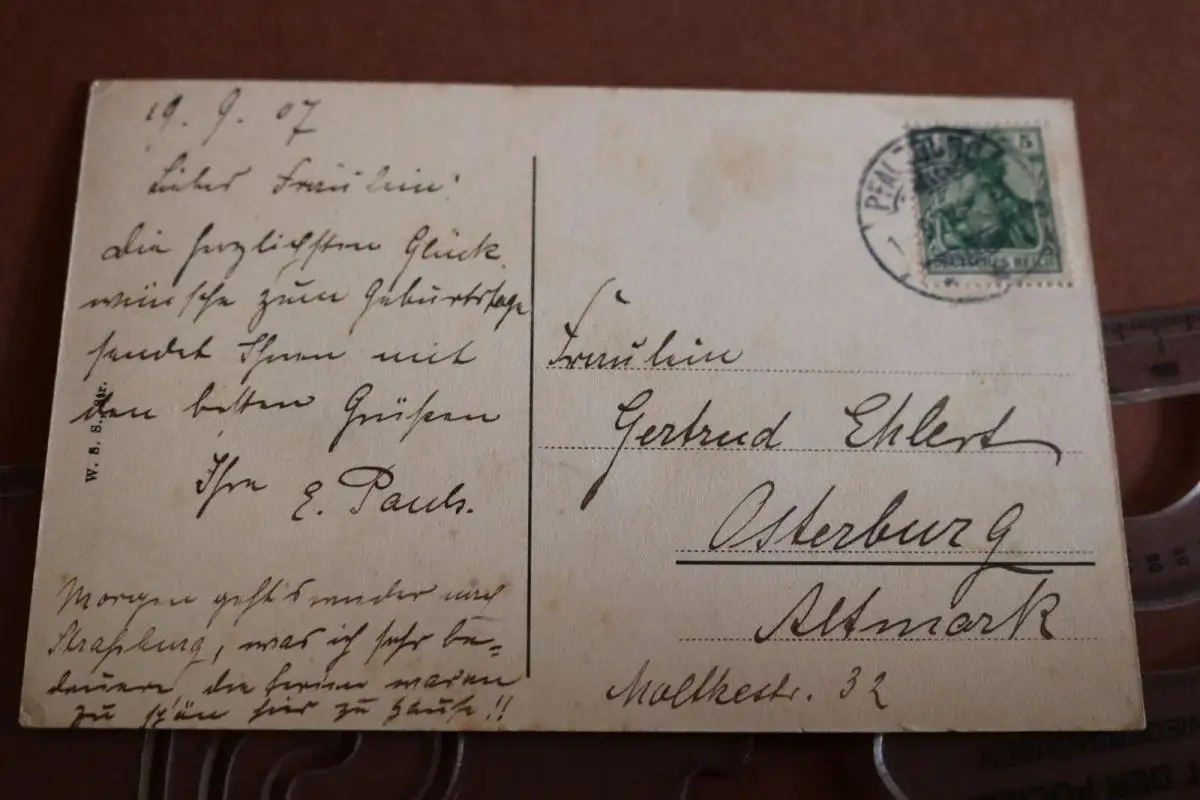 19. 9. 07
Liebes Fräulein!
Die herzlichsten Glück-
wünsche zum Geburtstage
sendet Ihnen mit
den besten Grüßen
Ihr
E. Pauls.
Morgen geht's wieder nach
Straßburg, was ich sehr be=
dauere, die Ferien waren
zu schön hier zu Hause!!
W. S. S. Str.
5
DEUTSCHES REICH
Fräulein
Gertrud Ehlert
Osterburg
Altmark
Moltkestr. 32